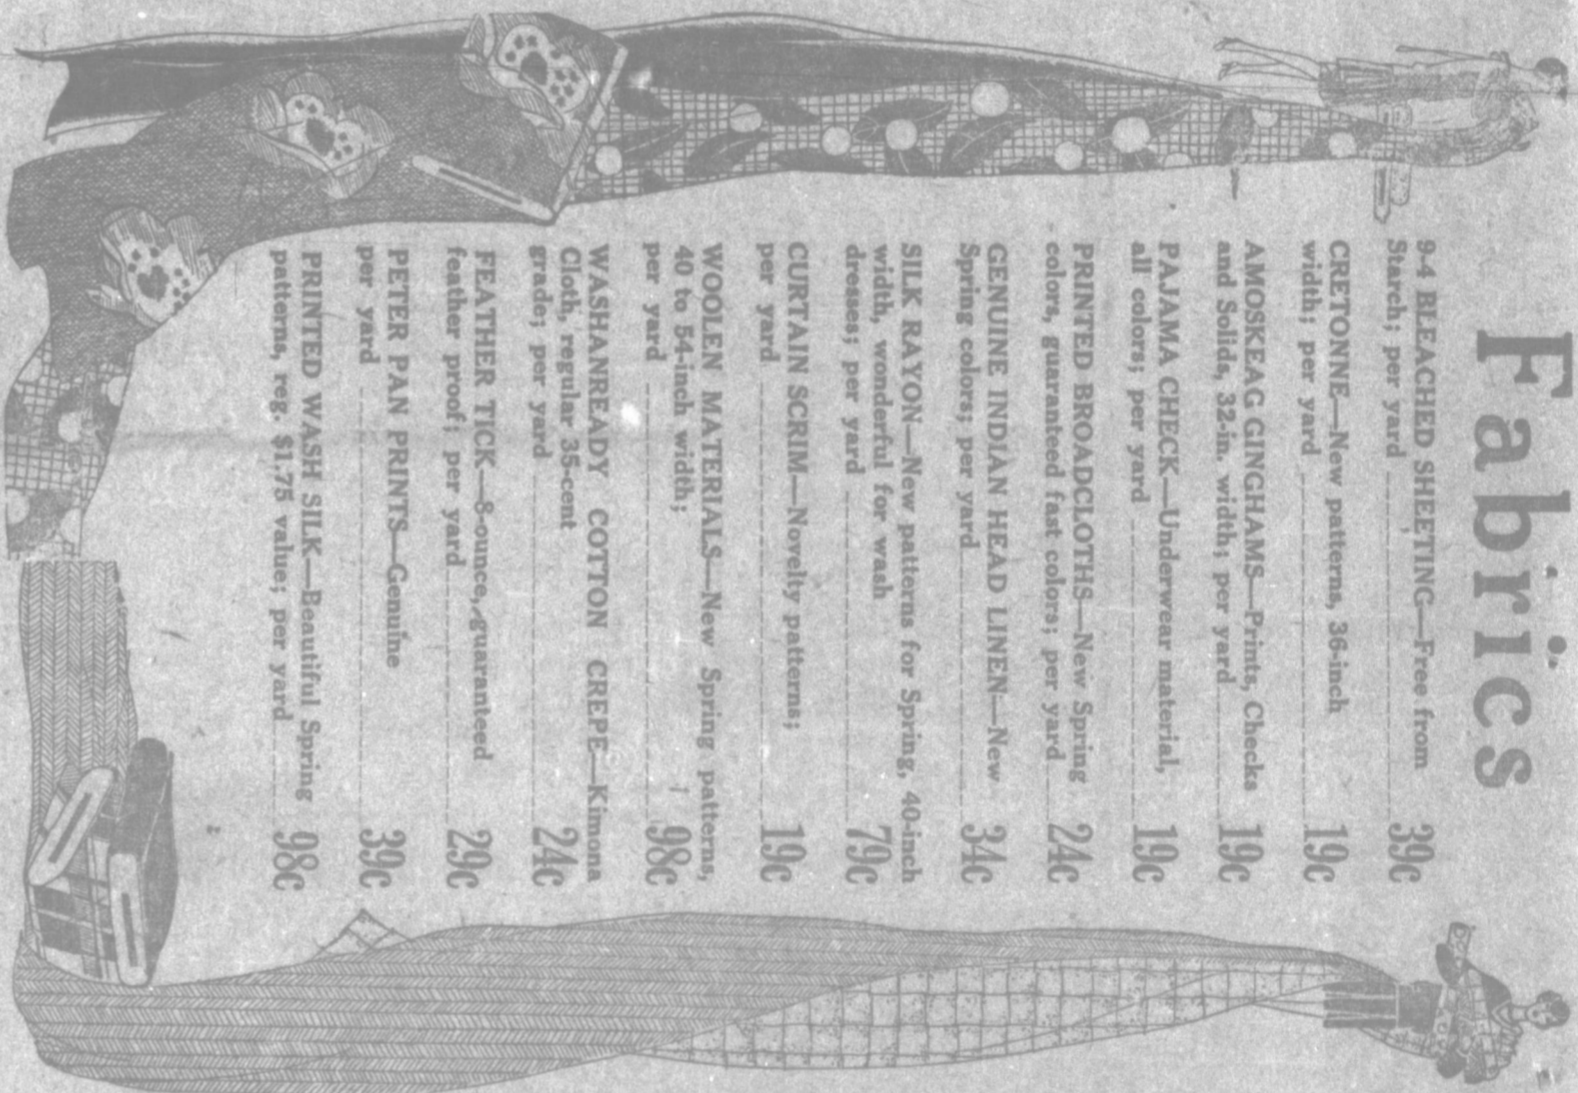 Fabrics
9-4 BLEACHED SHEETING—Free from
Starch; per yard 39c
CRETONNE—New patterns, 36-inch
width; per yard 19c
AMOSKEAG GINGHAMS—Prints, Checks
and Solids, 32-in. width; per yard 19c
PAJAMA CHECK—Underwear material,
all colors; per yard 19c
PRINTED BROADCLOTHS—New Spring
colors, guaranteed fast colors; per yard 24c
GENUINE INDIAN HEAD LINEN—New
Spring colors; per yard 34c
SILK RAYON—New patterns for Spring, 40-inch
width, wonderful for wash
dresses; per yard 79c
CURTAIN SCRIM—Novelty patterns;
per yard 19c
WOOLEN MATERIALS—New Spring patterns,
40 to 54-inch width;
per yard 98c
WASHANREADY COTTON CREPE—Kimona
Cloth, regular 35-cent
grade; per yard 24c
FEATHER TICK—8-ounce, guaranteed
feather proof; per yard 29c
PETER PAN PRINTS—Genuine
per yard 39c
PRINTED WASH SILK—Beautiful Spring
patterns, reg. $1.75 value; per yard 98c